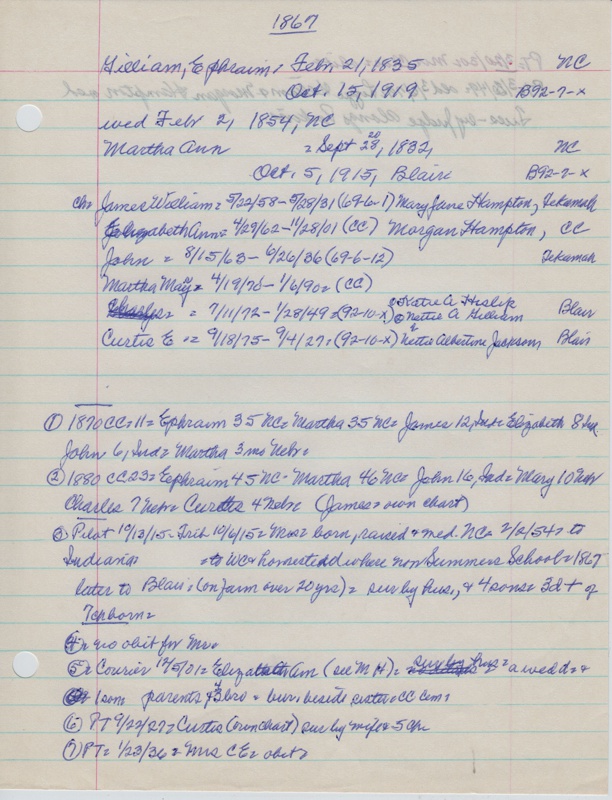 1867
Gilliam, Ephraim = Febr 21, 1835 NC
Oct. 15, 1919 B92-7-x
wed Febr 2, 1854, NC
Martha Ann = Sept 28, 1832, NC
Oct. 5, 1915, Blair B92-7-x
ch= James William = 5/22/58 - 5/28/31 (69-6-1) Mary Jane Hampton, Tekamah
Elizabeth Ann = 4/29/62 - 11/28/01 (CC) Morgan Hampton, CC
John = 8/15/63 - 6/26/36 (69-6-12) Tekamah
Martha May = 4/19/70 - 1/6/90 = (CC)
Charles = = 7/11/72 - 1/28/49 = (92-10-x) ① Katie A Hislip ② Nettie A Gilliam Blair
Curtis E = 9/18/75 - 9/4/27 = (92-10-x) Nettie Albertine Jackson Blair
① 1870 CC = 11 = Ephraim 35 NC = Martha 35 NC = James 12, Ind = Elizabeth 8 Ind
John 6, Ind = Martha 3 mo Nebr =
② 1880 CC 23 = Ephraim 45 NC - Martha 46 NC = John 16, Ind = Mary 10 Nebr
Charles 7 Nebr = Curtis 4 Nebr (James = own chart)
③ Pilot 10/13/15 - Trib 10/6/15 = Mrs = born, raised & wed. NC = 2/2/54 = to
Indiana = to WC & homestead where now Summers School = 1867
later to Blair = (on farm over 20 yrs) = sur by hus, & 4 sons = 3d + of
7 ch born =
④ = no obit for Mr =
⑤ = Courier 12/5/01 = Elizabeth Ann (see M H) = sur by hus = a wed d = &
1 son = parents & 3 bro = bur. beside sister = CC Cem =
⑥ PT 9/22/27 = Curtis (own chart) sur by wife & 5 ch
⑦ PT = 1/23/36 = Mrs C E = obit =